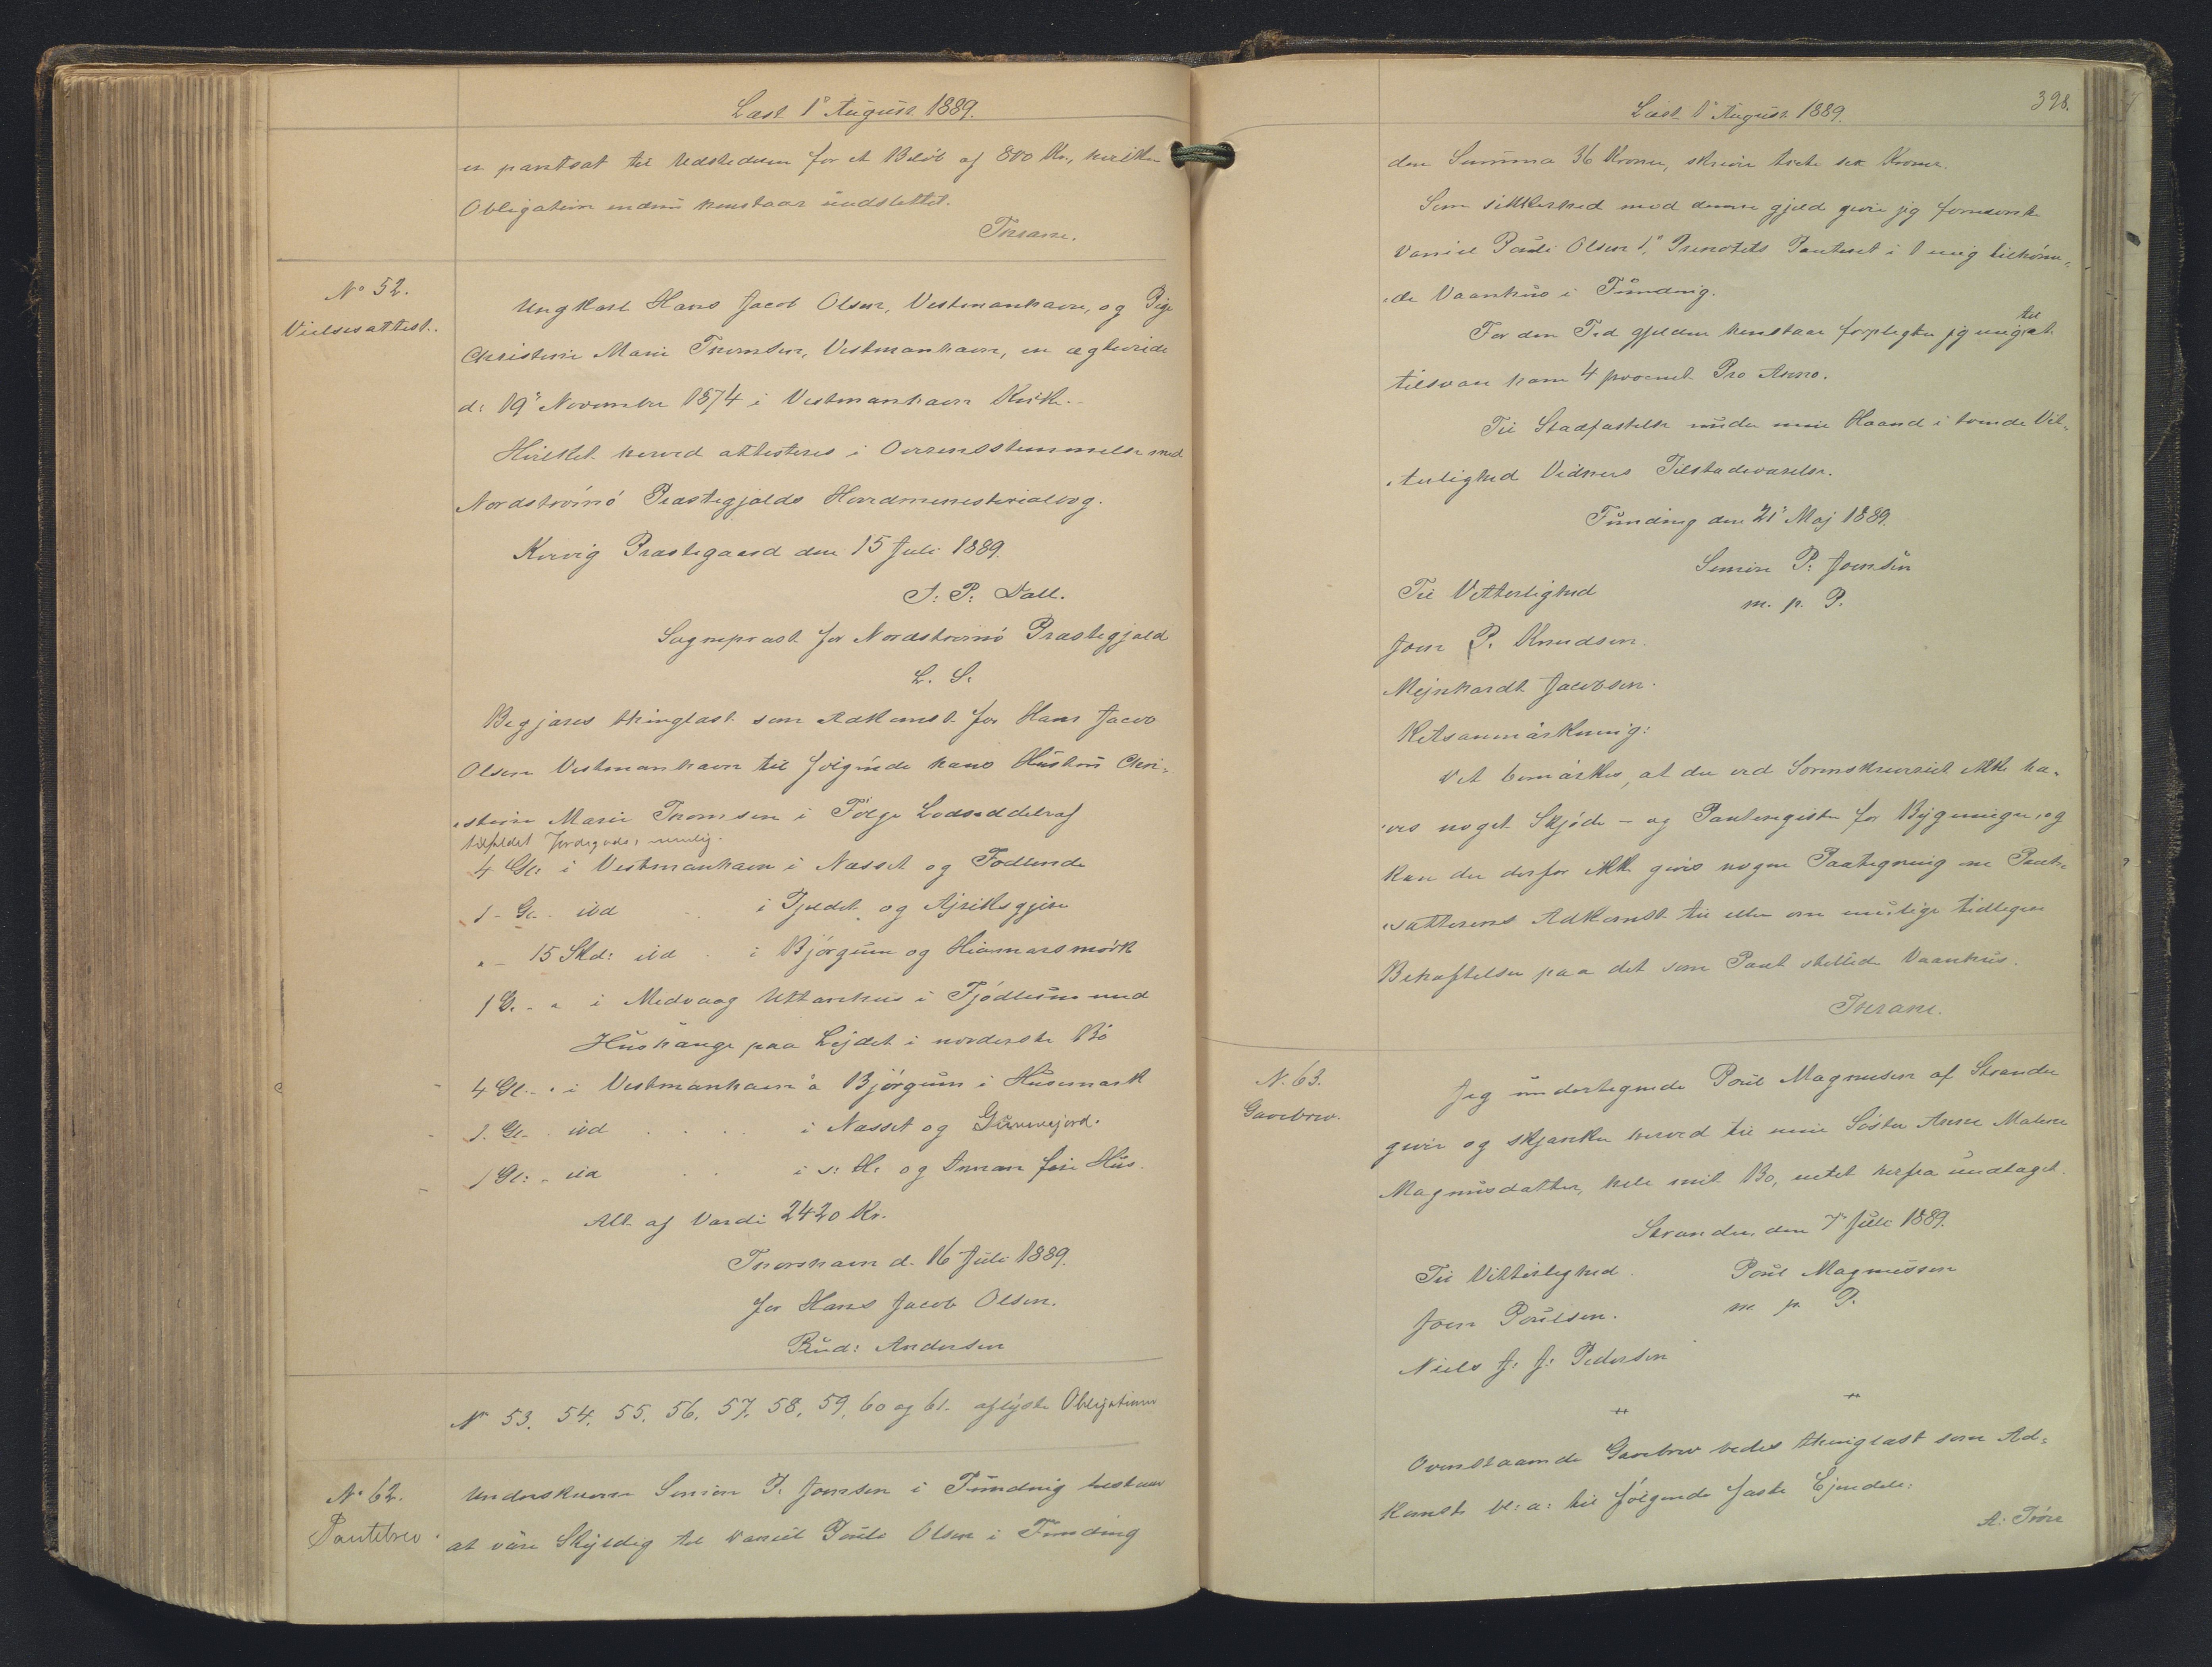 Læst 1ᵒ August 1889.
er pantsat til Udstederen for et Beløb af 800 Kr., hvilken
Obligation endnu henstaar uudslettet.
Thrane.
Nº 52.
Vielsesattest.
Ungkarl Hans Jacob Olsen, Vestmanhavn, og Pige
Christine Marie Thomsen, Vestmanhavn, er ægteviede
d: 19º November 1874 i Vestmanhavn Kirke.
Hvilket herved attesteres i Overensstemmelse med
Nordstrømø Præstegjælds Hovedministerialbog.
Kvivig Præstegaard den 15 Juli 1889.
J: P: Dall.
Sognepræst for Nordstrømø Præstegjæld
L. S.
Begjæres thinglæst som Adkomst for Hans Jacob
Olsen Vestmanhavn til følgende hans Hustru Chri-
stine Marie Thomsen i Følge Lodseddel af
tilfaldet Jordegods, nemlig:
4 Gl: i Vestmanhavn i Næsset og Fodlende
1 - Gl. ibd i Tjeldet og
" - 15 Skd: ibd i Bjørgum og
1 G. - " i Medvaag Uttanhus i Fjødlum med
Hushauge paa Lejdet i norderste Bø
4 Gl. - " i Vestmanhavn a Bjørgum i Husemark
1. Gl - ibd i Næsset og
1 Gl: " ibd i s: H: og Innan fire Hus.
Alt af Værdi 2420 Kr.
Thorshavn d. 16 Juli 1889.
for Hans Jacob Olsen.
Rud: Andersen
Nº 53. 54. 55. 56. 57. 58. 59. 60 og 61. aflyste Obligationer
Nº 62.
Pantebrev.
Underskrevne Simion P. Joensen i Funding tilstaar
at være skyldig til Daniel Pauli Olsen i Funding
398.
Læst 1ᵒ August 1889.
den Summa 36 Kroner, skriver treti sex Kroner.
Som sikkerhed mod denne gjeld giver jeg fornævnte
Daniel Pauli Olsen 1.º Prioritets Panteret i 1 mig tilhøren-
de Vaanhus i Funding.
For den Tid gjelden henstaar forpligter jeg mig til at
tilsvare ham 4 procent Pro Anno.
Til Stadfæstelse under min Haand i tvende Vit-
terlighed Vidners Tilstedeværelse.
Funding den 21º Maj 1889.
Simion P: Joensen
m. p. P.
Til Vitterlighed
Joen P. Knudsen.
Mejnhardt Jacobsen.
Retsanmærkning:
Det bemærkes, at der ved Sorenskriveriet ikke ha-
ves noget Skjøde- og Panteregister for Bygninger, og
kan der derfor ikke gives nogen Paategning om Pant-
sætterens Adkomst til eller om mulige tidligere
Behæftelser paa det som Pant stillede Vaanhus.
Thrane.
N. 63.
Gavebrev.
Jeg undertegnede Poul Magnusen af Strander
giver og skjænker herved til min Søster Anne Malene
Magnusdatter, hele mit Bo, intet herfra undtaget.
Strander, den 7º Juli 1889.
Til Vitterlighed.
Poul Magnussen
m. p. P.
Joen Poulsen.
Niels J: J: Pedersen
Ovenstaaende Gavebrev bedes thinglæst som Ad-
komst bl: a: til følgende faste Ejendele:
A: